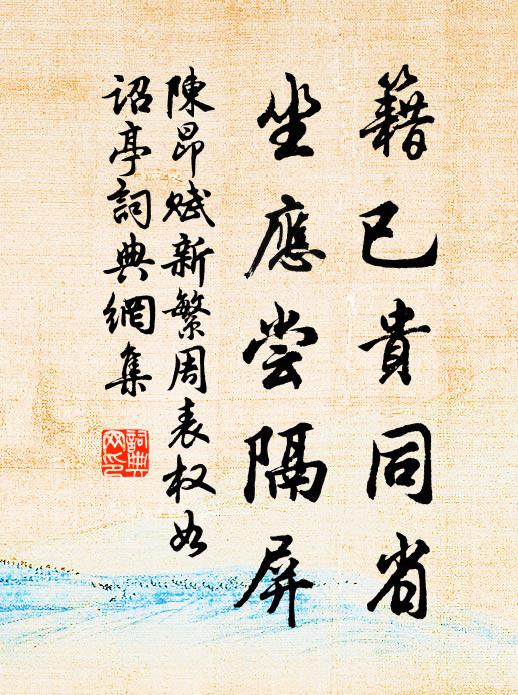 籍已貴同省
坐應尝隔屏
陳昂賦新繁周表权如
詔亭詞典網集
詞典網印